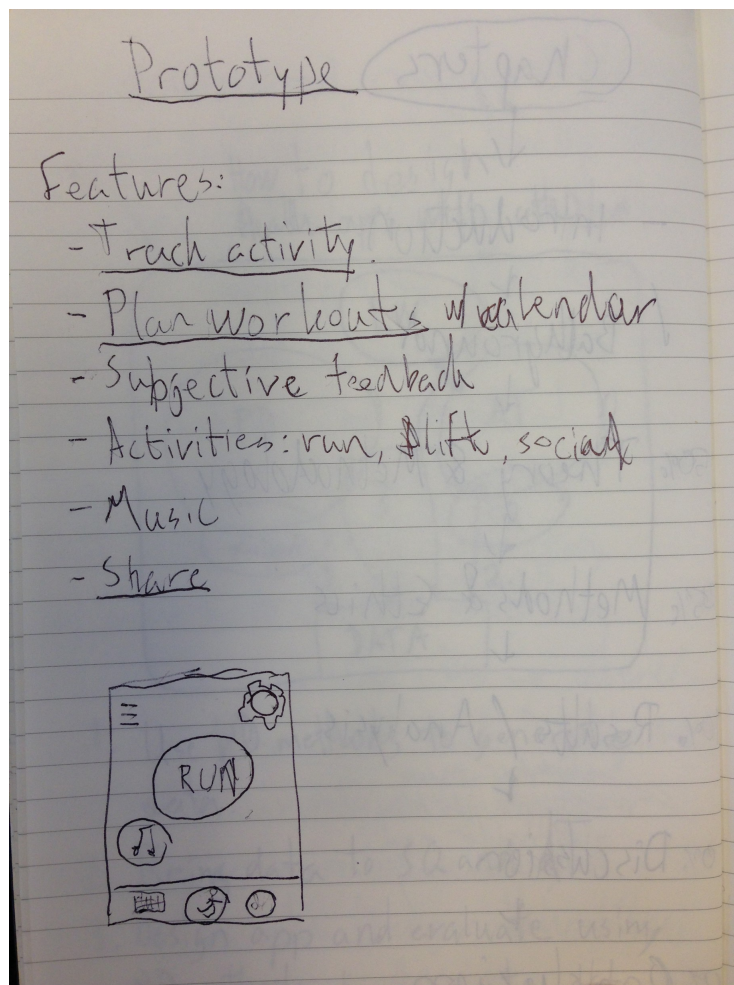 Prototype
Features:
- Track activity.
- Plan workouts w/calendar
- Subjective feedback
- Activities: run, lift, social
- Music
- Share
RUN